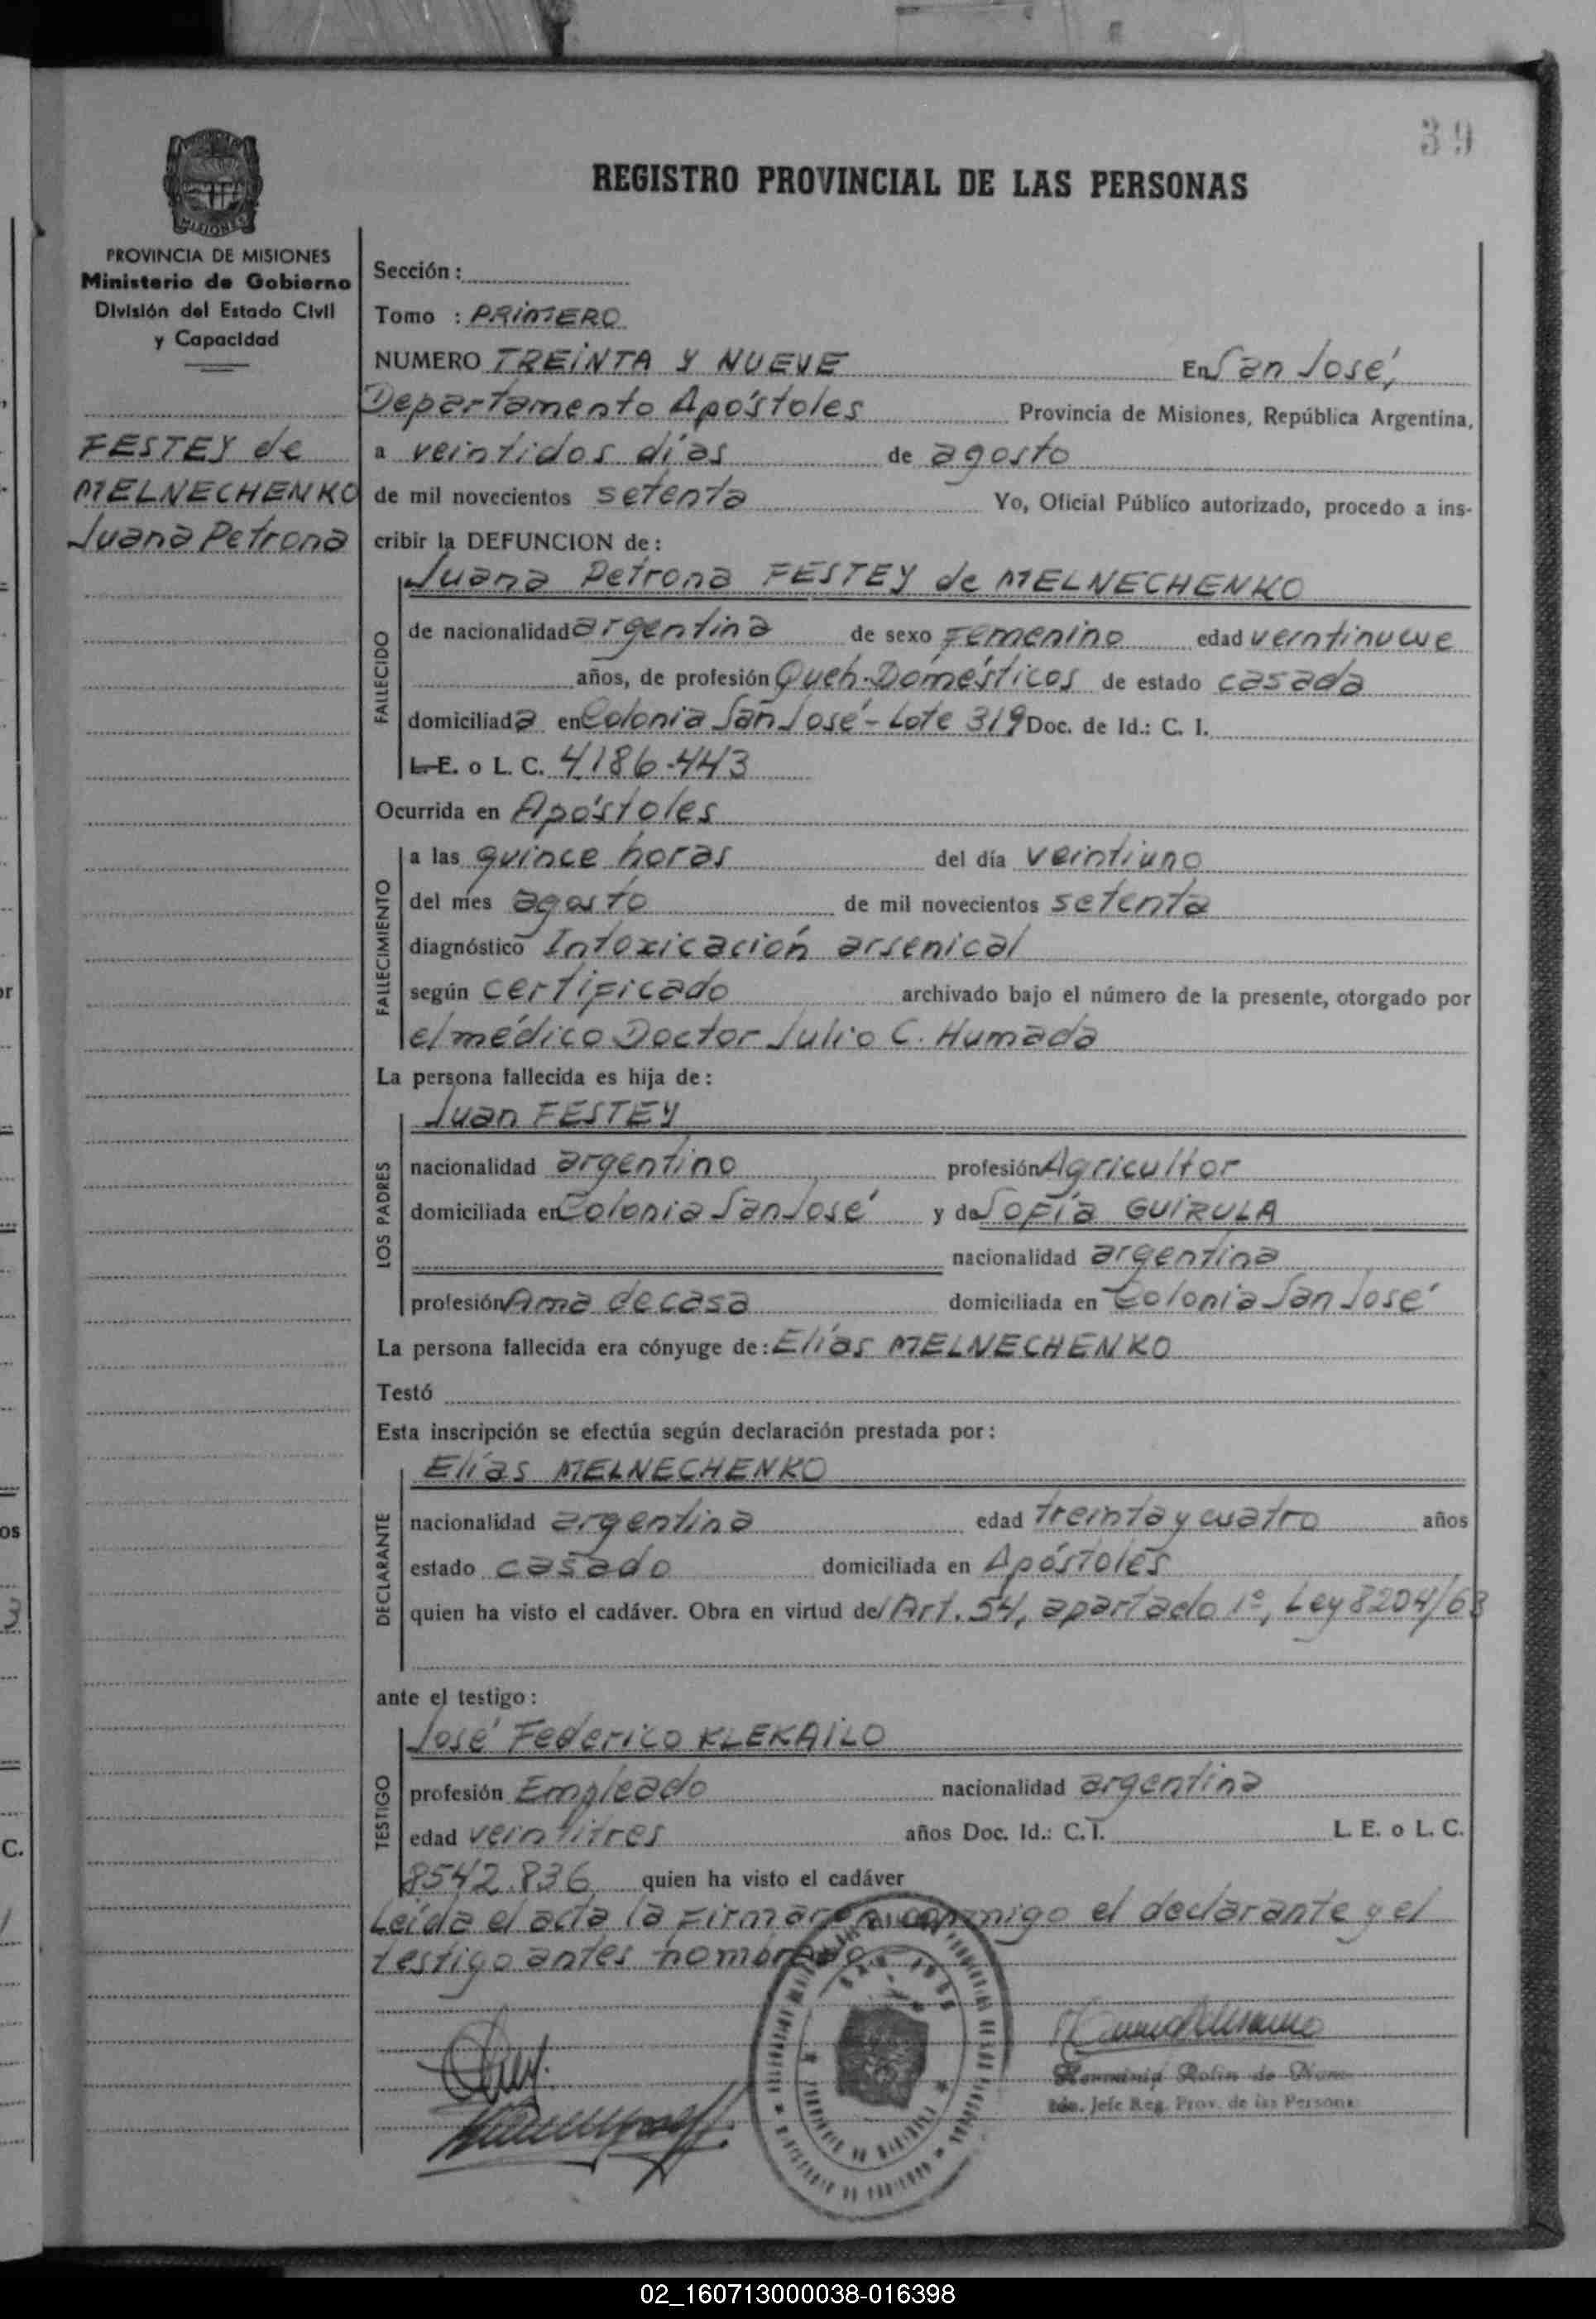 39
REGISTRO PROVINCIAL DE LAS PERSONAS
MISIONES
PROVINCIA DE MISIONES
Ministerio de Gobierno
División del Estado Civil
y Capacidad
FESTEY de
MELNECHENKO
Juana Petrona
Sección :
Tomo : PRIMERO
NUMERO TREINTA Y NUEVE En San José,
Departamento Apóstoles Provincia de Misiones, República Argentina,
a veintidos días de agosto
de mil novecientos setenta Yo, Oficial Público autorizado, procedo a ins-
cribir la DEFUNCION de :
Juana Petrona FESTEY de MELNECHENKO
FALLECIDO
de nacionalidad argentina de sexo Femenino edad veintinueve
años, de profesión Queh. Domésticos de estado casada
domiciliada en Colonia San José - Lote 319 Doc. de Id.: C. I.
L. E. o L. C. 4186.443
Ocurrida en Apóstoles
FALLECIMIENTO
a las quince horas del día veintiuno
del mes agosto de mil novecientos setenta
diagnóstico Intoxicación arsenical
según certificado archivado bajo el número de la presente, otorgado por
el médico Doctor Julio C. Humada
La persona fallecida es hija de :
LOS PADRES
Juan FESTEY
nacionalidad argentino profesión Agricultor
domiciliada en Colonia San José y de Sofía GUIRULA
nacionalidad argentina
profesión Ama de casa domiciliada en Colonia San José
La persona fallecida era cónyuge de : Elías MELNECHENKO
Testó
Esta inscripción se efectúa según declaración prestada por :
DECLARANTE
Elías MELNECHENKO
nacionalidad argentina edad treinta y cuatro años
estado casado domiciliada en Apóstoles
quien ha visto el cadáver. Obra en virtud del Art. 54, apartado 1º, Ley 8204/63
ante el testigo :
TESTIGO
José Federico KLEKAILO
profesión Empleado nacionalidad argentina
edad veintitres años Doc. Id.: C. I. L. E. o L. C.
8542.836 quien ha visto el cadáver
Leída el acta la firmaron conmigo el declarante y el
testigo antes nombrado
SAN JOSE
PROVINCIA DE MISIONES
MINISTERIO DE GOBIERNO
Rolin de
Jefe Reg. Prov. de las Personas
02_160713000038-016398